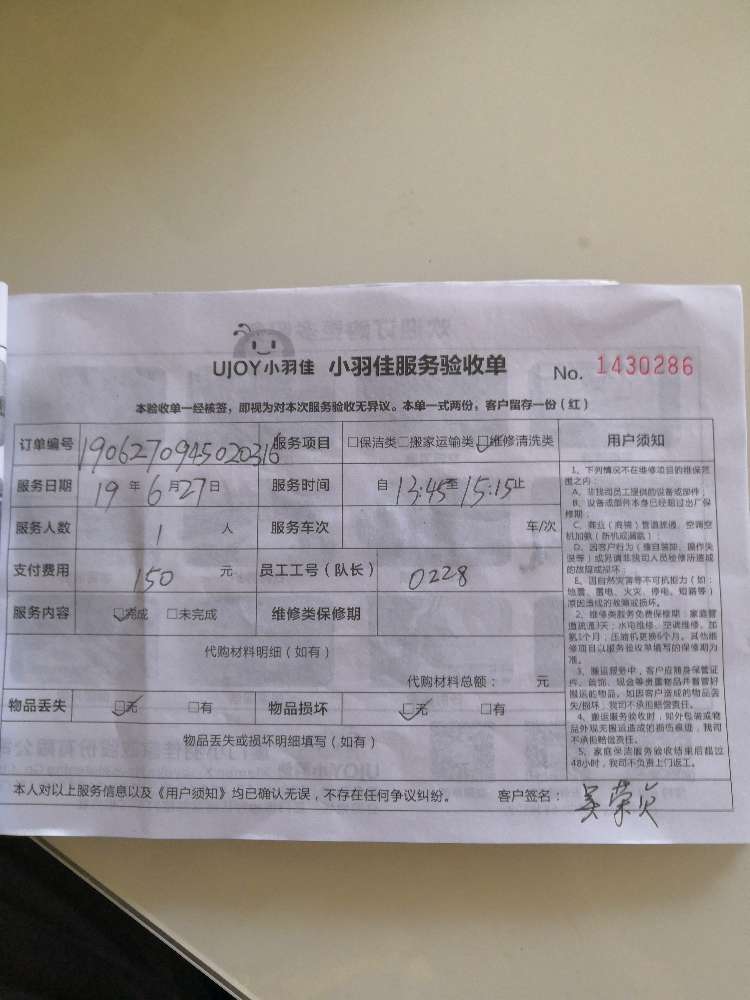 UJOY小羽佳 小羽佳服务验收单 No. 1430286
本验收单一经被签，即视为对本次服务验收无异议。本单一式两份，客户留存一份（红）
订单编号 1906270945020316 服务项目 □保洁类 □搬家运输类 ☑维修清洗类
服务日期 19 年 6 月 27 日 服务时间 自 13:45 至 15:15 止
服务人数 1 人 服务车次 车/次
支付费用 150 元 员工工号（队长） 0228
服务内容 ☑完成 □未完成 维修类保修期
代购材料明细（如有）
代购材料总额： 元
物品丢失 ☑无 □有 物品损坏 ☑无 □有
物品丢失或损坏明细填写（如有）
本人对以上服务信息以及《用户须知》均已确认无误，不存在任何争议纠纷。 客户签名： 吴荣贞
用户须知
1、下列情况不在维修项目的维保范
围之内：
A、非我司员工提供的设备或部件；
B、设备或部件本身已经超过出厂保
修期；
C、群丘（商铺）管道疏通、空调空
机加氨（新机或漏氨）
D、因客户行为（擅自装卸、操作失
误等）或另请非我司人员检修所造成
的故障或损坏；
E、因自然灾害等不可抗拒力（如：
地震、雷电、火灾、停电、短路等）
原因造成的故障或损坏。
2、维修类服务免费保修期：家庭管
道疏通3天；水电维修、空调维修、加
氨1个月；压缩机更换6个月。其他维
修项目以服务验收单填写的保修期为
准。
3、搬运服务中，客户应随身保管证
件、首饰、现金等贵重物品并看管好
搬运的物品。如因客户造成的物品丢
失/损坏，我司不承担赔偿责任。
4、搬运服务验收时，如外包装或物
品外观无搬运造成的损伤痕迹，我司
不承担赔偿责任。
5、家庭保洁服务验收结束后超过
48小时，我司不负责上门返工。